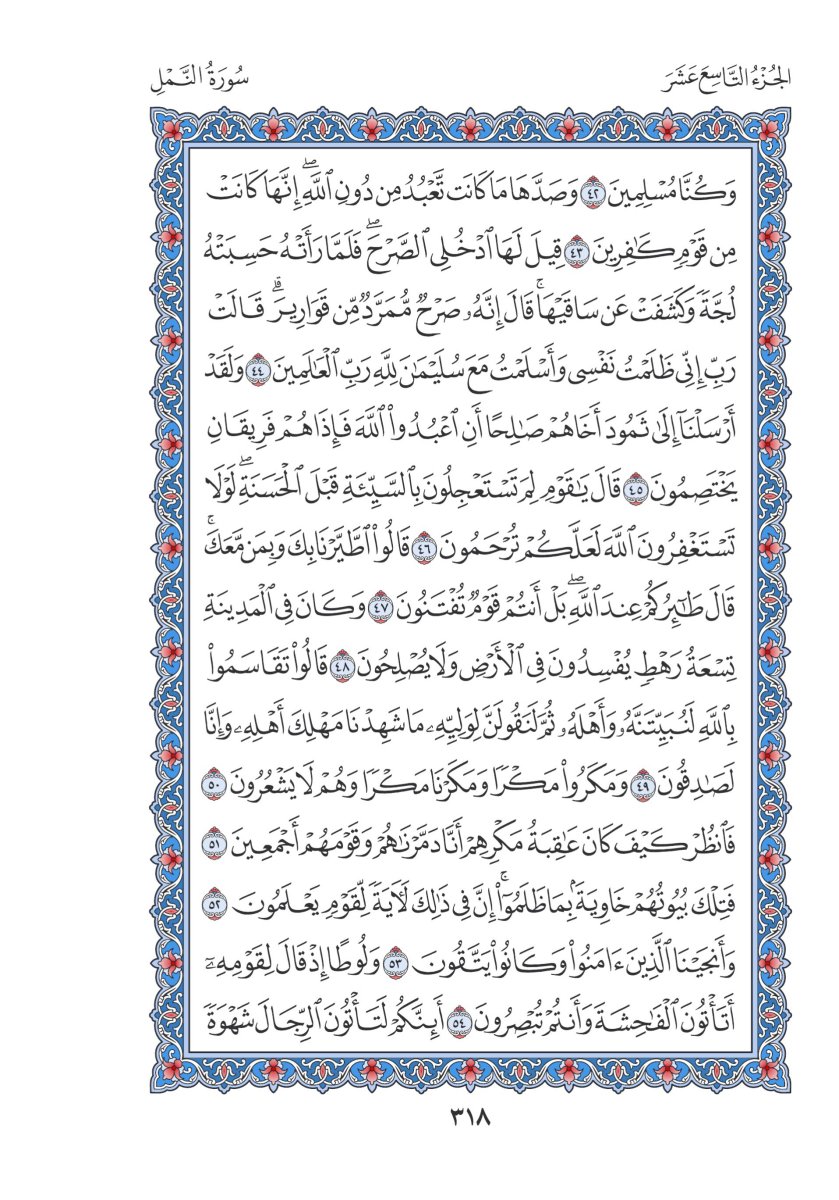 الجُزْءُ التَّاسِعَ عَشَرَ
سُورَةُ النَّمْلِ
وَكُنَّا مُسْلِمِينَ ٤٢ وَصَدَّهَا مَا كَانَت تَّعْبُدُ مِن دُونِ ٱللَّهِۖ إِنَّهَا كَانَتْ
مِن قَوْمٖ كَٰفِرِينَ ٤٣ قِيلَ لَهَا ٱدْخُلِي ٱلصَّرْحَۖ فَلَمَّا رَأَتْهُ حَسِبَتْهُ
لُجَّةٗ وَكَشَفَتْ عَن سَاقَيْهَاۚ قَالَ إِنَّهُۥ صَرْحٞ مُّمَرَّدٞ مِّن قَوَارِيرَۗ قَالَتْ
رَبِّ إِنِّي ظَلَمْتُ نَفْسِي وَأَسْلَمْتُ مَعَ سُلَيْمَٰنَ لِلَّهِ رَبِّ ٱلْعَٰلَمِينَ ٤٤ وَلَقَدْ
أَرْسَلْنَآ إِلَىٰ ثَمُودَ أَخَاهُمْ صَٰلِحًا أَنِ ٱعْبُدُواْ ٱللَّهَ فَإِذَا هُمْ فَرِيقَانِ
يَخْتَصِمُونَ ٤٥ قَالَ يَٰقَوْمِ لِمَ تَسْتَعْجِلُونَ بِٱلسَّيِّئَةِ قَبْلَ ٱلْحَسَنَةِۖ لَوْلَا
تَسْتَغْفِرُونَ ٱللَّهَ لَعَلَّكُمْ تُرْحَمُونَ ٤٦ قَالُواْ ٱطَّيَّرْنَا بِكَ وَبِمَن مَّعَكَۚ
قَالَ طَٰٓئِرُكُمْ عِندَ ٱللَّهِۖ بَلْ أَنتُمْ قَوْمٞ تُفْتَنُونَ ٤٧ وَكَانَ فِي ٱلْمَدِينَةِ
تِسْعَةُ رَهْطٖ يُفْسِدُونَ فِي ٱلْأَرْضِ وَلَا يُصْلِحُونَ ٤٨ قَالُواْ تَقَاسَمُواْ
بِٱللَّهِ لَنُبَيِّتَنَّهُۥ وَأَهْلَهُۥ ثُمَّ لَنَقُولَنَّ لِوَلِيِّهِۦ مَا شَهِدْنَا مَهْلِكَ أَهْلِهِۦ وَإِنَّا
لَصَٰدِقُونَ ٤٩ وَمَكَرُواْ مَكْرٗا وَمَكَرْنَا مَكْرٗا وَهُمْ لَا يَشْعُرُونَ ٥٠
فَٱنظُرْ كَيْفَ كَانَ عَٰقِبَةُ مَكْرِهِمْ أَنَّا دَمَّرْنَٰهُمْ وَقَوْمَهُمْ أَجْمَعِينَ ٥١
فَتِلْكَ بُيُوتُهُمْ خَاوِيَةَۢ بِمَا ظَلَمُوٓاْۚ إِنَّ فِي ذَٰلِكَ لَأٓيَةٗ لِّقَوْمٖ يَعْلَمُونَ ٥٢
وَأَنجَيْنَا ٱلَّذِينَ ءَامَنُواْ وَكَانُواْ يَتَّقُونَ ٥٣ وَلُوطًا إِذْ قَالَ لِقَوْمِهِۦٓ
أَتَأْتُونَ ٱلْفَٰحِشَةَ وَأَنتُمْ تُبْصِرُونَ ٥٤ أَئِنَّكُمْ لَتَأْتُونَ ٱلرِّجَالَ شَهْوَةٗ
٣١٨